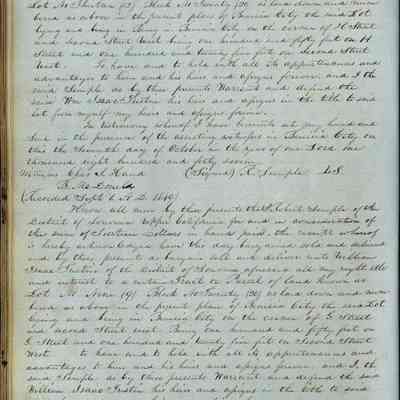 Lot No Thirteen (13) Block No Twenty (20) as laid down and num
bered as above in the present plan of Benicia City the said Lot
lying and being in Benicia City on the corner of H Street
and Second Street West being one hundred and fifty feet on H
Street and one hundred and twenty five feet on Second Street
West. To have and to hold with all its appurtenances and
advantages to him and his heirs and assigns forever. and I the
said Semple do by these presents Warrant and defend the
said Wm Isaac Tustin his heirs and assigns in the title to said
Lot from myself my heirs and assigns forever.
In testimony whereof I have hereunto set my hand and
Seal in the presence of the attesting witnesses in Benicia City on
this the Seventh day of October in the year of our Lord one
thousand eight hundred and forty seven
Witness Chas S. Hand (Signed) R. Semple L.S.
(Recorded Sept 6 A.D. 1849)
Know all men by these presents that Robert Semple of the
District of Sonoma Upper California for and in consideration of
the sum of Sixteen Dollars in hand paid, the receipt whereof
is hereby acknowledged have this day bargained sold and released
and by these presents do bargain sell and deliver unto William
Isaac Tustin of the District of Sonoma aforesaid all my right title
and interest to a certain Tract or Parcel of land known as
Lot No Nine (9) Block No Twenty (20) as laid down and num
bered as above in the present plan of Benicia City the said Lot
lying and being in Benicia City on the corner of G Street
and second Street west. Being one hundred and fifty feet on
G Street and one hundred and twenty five feet on Second Street
West to have and to hold with all its appurtenances and
advantages to him and his heirs and assigns forever and I, the
said Semple do by these presents Warrant and defend the said
William Isaac Tustin his heirs and assigns in the title to said